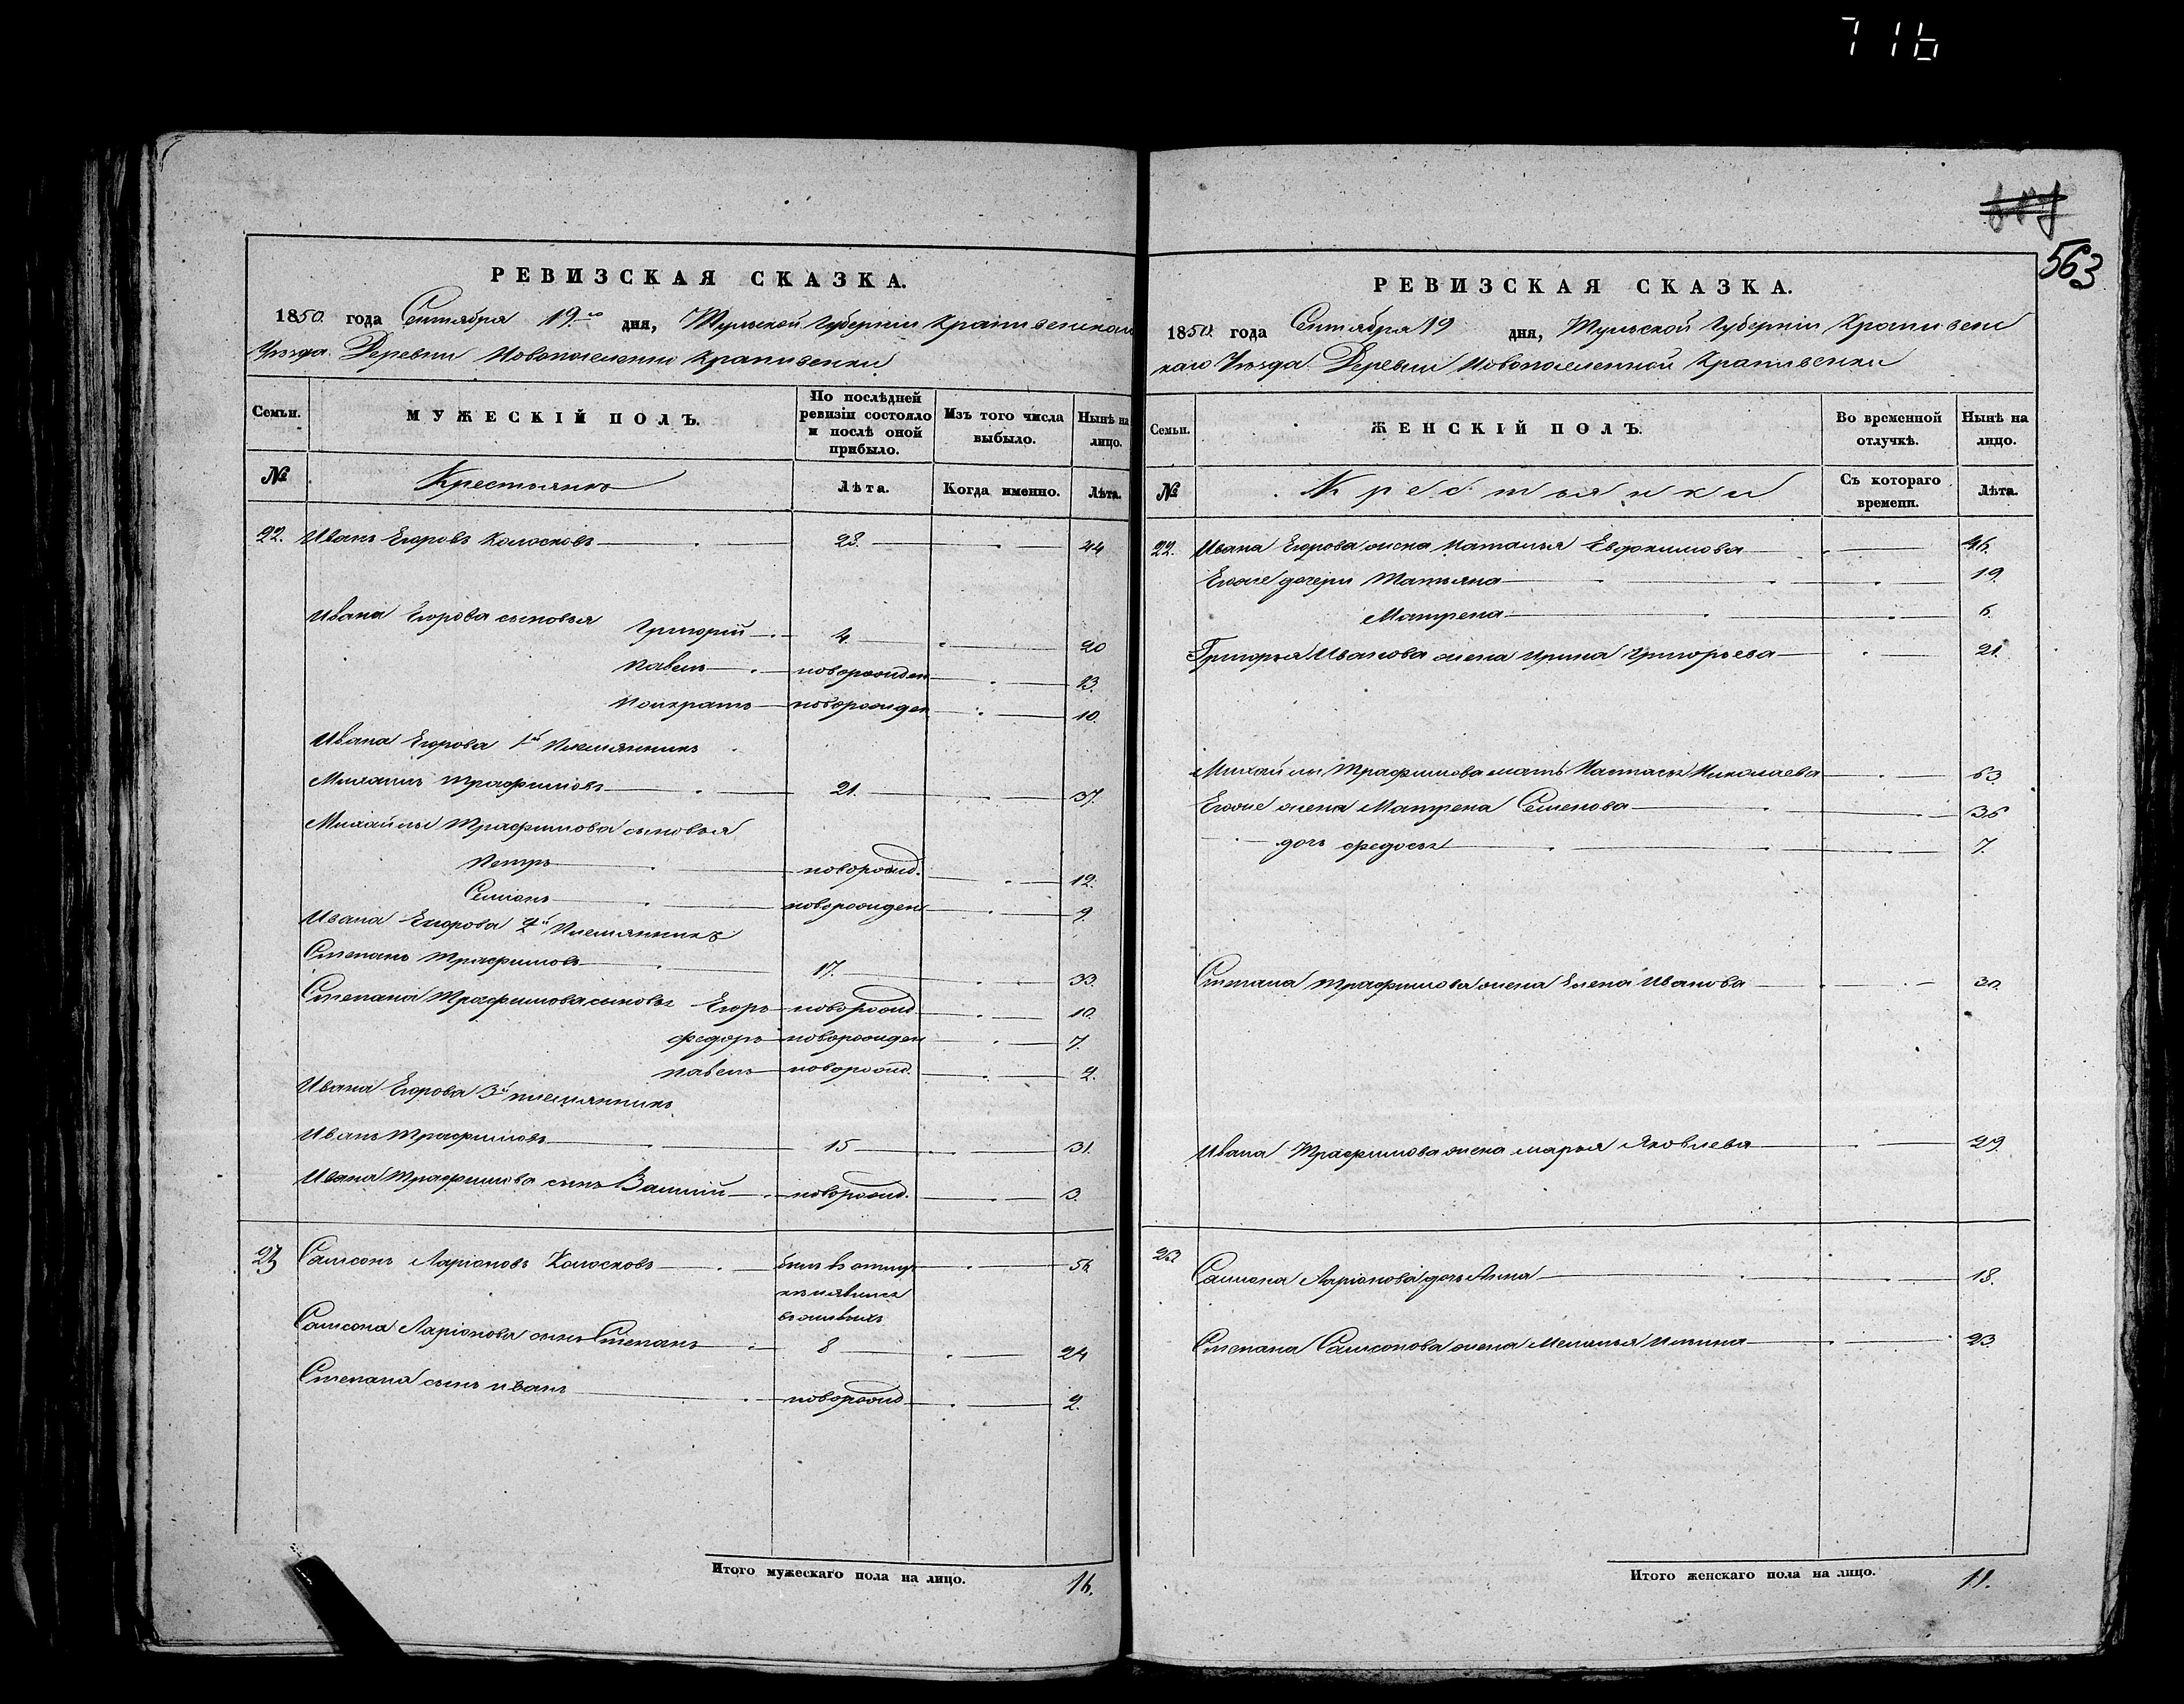 716
563
РЕВИЗСКАЯ СКАЗКА.
1850. года Сентября 19го дня, Тульской Губерніи Крапивенскаго
Уѣзда Деревни Новопоселенной Крапивенки
Семьи.
МУЖЕСКІЙ ПОЛЪ.
По послѣдней ревизіи состояло и послѣ оной прибыло.
Изъ того числа выбыло.
Нынѣ на лицо.
№
Крестьянъ
Лѣта.
Когда именно.
Лѣта.
22. Иванъ Егоровъ Колосковъ 28. 44
Ивана Егорова сыновья
Григорій 4. 20
Павелъ новорожден 13.
Понкратъ новорожден 10.
Ивана Егорова 1й племянникъ
Михаилъ Трафимовъ 21. 37.
Михайлы Трафимова сыновья
Петръ новорожд. 12.
Семионъ новорожден 9.
Ивана Егорова 2й племянникъ
Степанъ Трафимовъ 17. 33.
Степана Трафимова сыновья Егоръ новорожд 10.
Федоръ новорожден 7.
Павелъ новорожд. 2.
Ивана Егорова 3й племянникъ
Иванъ Трафимовъ 15 31.
Ивана Трафимова сынъ Василий новорожд. 3.
23 Самсонъ Ларіоновъ Колосковъ 56.
Самсона Ларіонова сынъ Степанъ 8 24
Степана сынъ иванъ новорожд 2.
Итого мужескаго пола на лицо. 16.
РЕВИЗСКАЯ СКАЗКА.
1850. года Сентября 19 дня, Тульской Губерніи Крапивенс
каго Уѣзда Деревни Новопоселенной Крапивенки
Семьи.
ЖЕНСКІЙ ПОЛЪ.
Во временной отлучкѣ.
Нынѣ на лицо.
№
Крестьянки
Съ котораго времени.
Лѣта.
22. Ивана Егорова жена Наталья Евдокимова 46.
Егоже дочери Татьяна 19.
Матрена 6.
Григорья Иванова жена Ирина Григорьева 21.
Михайлы Трафимова мать Настасья Николаева 63
Егоже жена Матрена Семенова 36
дочь Федосья 7.
Степана Трафимова жена Елена Иванова 30.
Ивана Трафимова жена марья Яковлева 29.
23 Самсона Ларіонова дочь Анна 18.
Степана Самсонова жена Меланья Ильина 23.
Итого женскаго пола на лицо. 11.